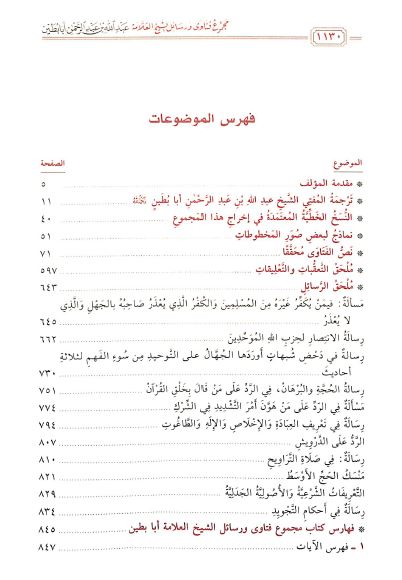 ١١٣٠ مجموع فتاوى ورسائل الشيخ العلامة عبد الله بن عبد الرحمن أبا بطين
فهرس الموضوعات
الموضوع الصفحة
* مقدمة المؤلف ٥
* تَرْجَمَةُ المُفتِي الشَّيخِ عبدِ اللهِ بْنِ عَبدِ الرَّحْمٰنِ أبا بُطَين ﷺ ١١
* النُّسَخُ الخَطِّيَّةُ المُعتَمَدَةُ في إخراجِ هذا المَجموعِ ٤٠
* نماذجُ لبعضِ صُوَرِ المَخطوطاتِ ٥١
* نَصُّ الفَتَاوَى مُحَقَّقًا ٧١
* مُلْحَقُ التَّعقُّباتِ والتَّعْلِيقاتِ ٥٩٧
* مُلْحَقُ الرَّسائِلِ ٦٤٣
مَسألَةٌ: فيمَنْ يُكَفِّرُ غَيْرَهُ مِنَ المُسْلِمِينَ والكُفْرِ الَّذِي يُعْذَرُ صَاحِبُهُ بِالجَهْلِ وَالَّذِي
لا يُعْذَرُ ٦٤٥
رِسَالَةُ الانْتِصَارِ لِحِزبِ اللهِ المُوَحِّدِينَ ٦٦٢
رسالةٌ في دَحْضِ شُبهاتٍ أورَدَها الجُهَّالُ على التَّوحيدِ مِن سُوءِ الفَهمِ لثلاثةِ
أحاديثَ ٧٣٠
رِسالَةُ الحُجَّةِ والبُرْهَانِ، فِي الرَّدِّ عَلَى مَنْ قَالَ بِخَلْقِ القُرْآنِ ٧٥١
مَسْأَلَةٌ فِي الرَّدِّ عَلَى مَنْ هَوَّنَ أَمْرَ التَّشْدِيدِ فِي الشِّرْكِ ٧٧٤
رِسَالَةٌ فِي تَعْرِيفِ العِبَادَةِ وَالإِخْلَاصِ وَالإِلَهِ وَالطَّاغُوتِ ٧٩٤
الرَّدُّ عَلَى الدَّرْوِيشِ ٨٠٧
رِسَالَةٌ: فِي صَلَاةِ التَّرَاوِيحِ ٨١٠
مَنْسَكُ الحَجِّ الأَوْسَطُ ٨٢١
التَّعْرِيفَاتُ الشَّرْعِيَّةُ وَالأُصُولِيَّةُ الجَدَلِيَّةُ ٨٢٩
رِسَالَةٌ فِي أحكامِ التَّجْوِيدِ ٨٣٤
* فهارس كتاب مجموع فتاوى ورسائل الشيخ العلامة أبا بطين ٨٤٥
١ - فهرس الآيات ٨٤٧